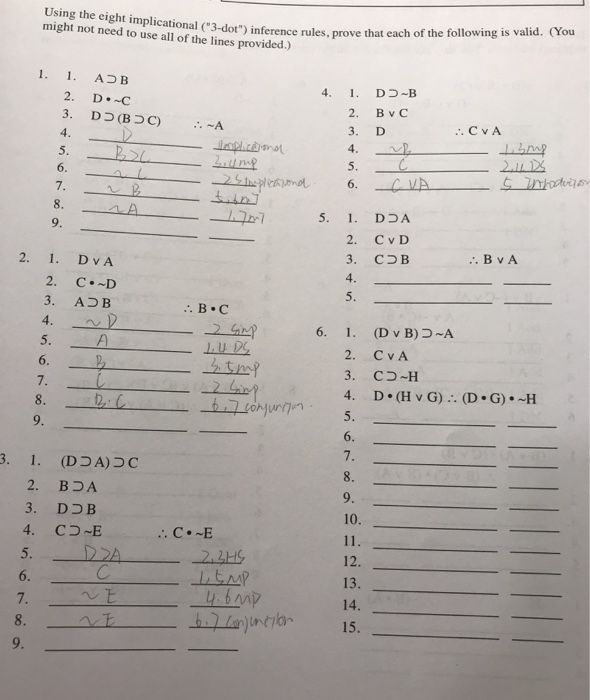 Using the eight implicational ("3-dot") inference rules, prove that each of the following is valid. (You
might not need to use all of the lines provided.)
1. 1. A⊃B
2. D•~C
3. D⊃(B⊃C) ∴ ~A
4. D Implicational
5. B⊃C 3,4 mp
6. ~C 2 Simplicational
7. ~B 5,6 m7
8. ~A 1,7 m7
9.
2. 1. D v A
2. C•~D
3. A⊃B ∴ B•C
4. ~D 2 Simp
5. A 1,4 DS
6. B 3,5 mp
7. C 2 Simp
8. B•C 6,7 conjunction
9.
3. 1. (D⊃A)⊃C
2. B⊃A
3. D⊃B
4. C⊃~E ∴ C•~E
5. D⊃A 2,3 HS
6. C 1,5 MP
7. ~E 4,6 MP
8. ~E 6,7 conjunction
9.
4. 1. D⊃~B
2. B v C
3. D ∴ C v A
4. ~B 1,3 mp
5. C 2,4 DS
6. C V A 5
5. 1. D⊃A
2. C v D
3. C⊃B ∴ B v A
4.
5.
6. 1. (D v B)⊃~A
2. C v A
3. C⊃~H
4. D•(H v G) ∴ (D•G)•~H
5.
6.
7.
8.
9.
10.
11.
12.
13.
14.
15.